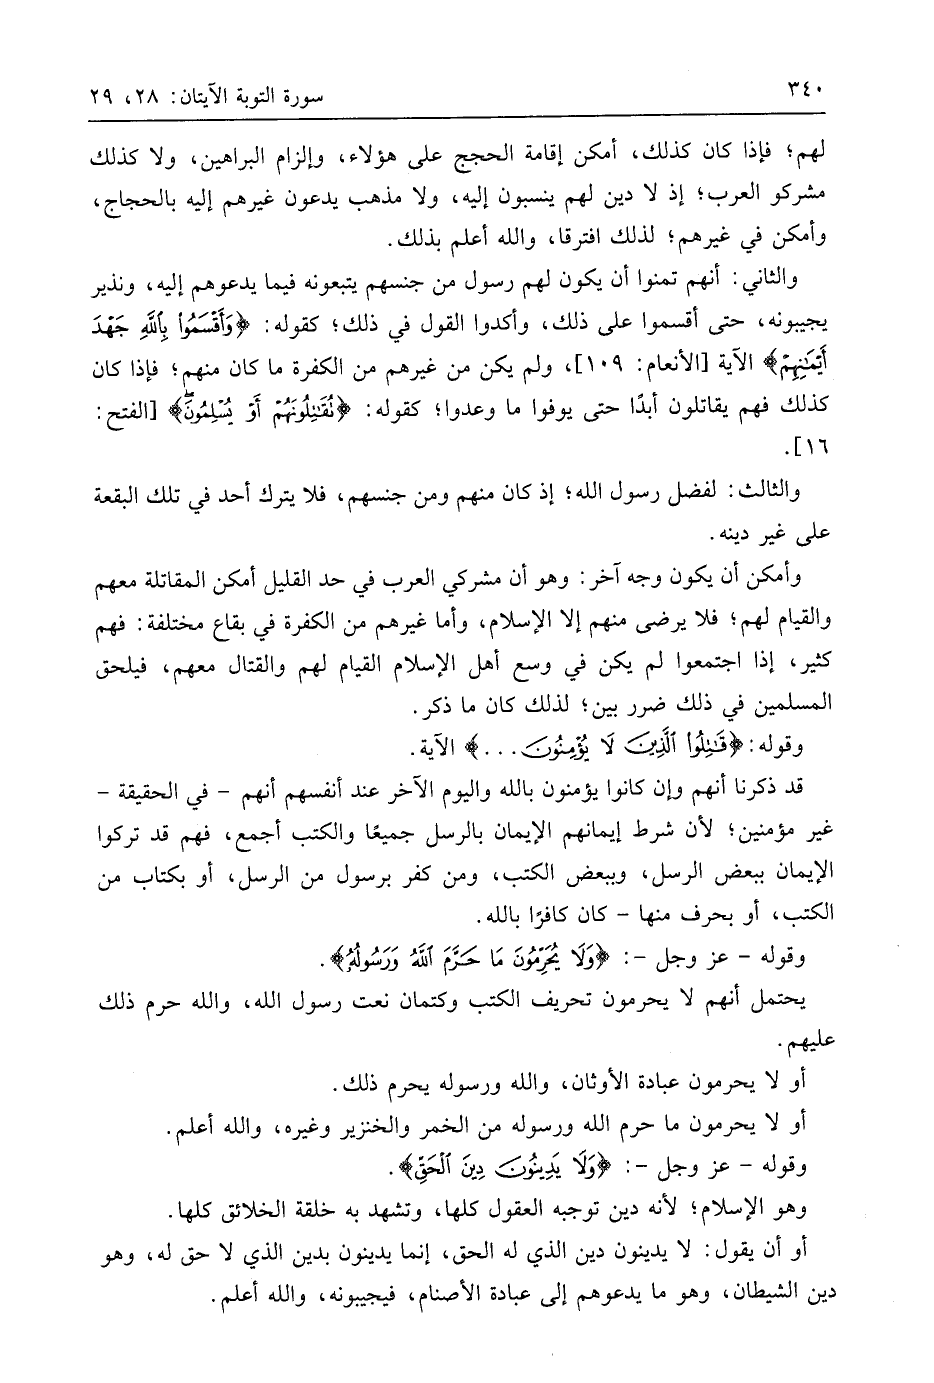 ٣٤٠
سورة التوبة الآيتان: ٢٨، ٢٩
لهم؛ فإذا كان كذلك، أمكن إقامة الحجج على هؤلاء، وإلزام البراهين، ولا كذلك
مشركو العرب؛ إذ لا دين لهم ينسبون إليه، ولا مذهب يدعون غيرهم إليه بالحجاج،
وأمكن في غيرهم؛ لذلك افترقا، والله أعلم بذلك.
والثاني: أنهم تمنوا أن يكون لهم رسول من جنسهم يتبعونه فيما يدعوهم إليه، ونذير
يجيبونه، حتى أقسموا على ذلك، وأكدوا القول في ذلك؛ كقوله: ﴿وَأَقْسَمُوا۟ بِٱللَّهِ جَهْدَ
أَيْمَٰنِهِمْ﴾ الآية [الأنعام: ١٠٩]، ولم يكن من غيرهم من الكفرة ما كان منهم؛ فإذا كان
كذلك فهم يقاتلون أبدًا حتى يوفوا ما وعدوا؛ كقوله: ﴿تُقَٰتِلُونَهُمْ أَوْ يُسْلِمُونَۖ﴾ [الفتح:
١٦].
والثالث: لفضل رسول الله؛ إذ كان منهم ومن جنسهم، فلا يترك أحد في تلك البقعة
على غير دينه.
وأمكن أن يكون وجه آخر: وهو أن مشركي العرب في حد القليل أمكن المقاتلة معهم
والقيام لهم؛ فلا يرضى منهم إلا الإسلام، وأما غيرهم من الكفرة في بقاع مختلفة: فهم
كثير، إذا اجتمعوا لم يكن في وسع أهل الإسلام القيام لهم والقتال معهم، فيلحق
المسلمين في ذلك ضرر بين؛ لذلك كان ما ذكر.
وقوله: ﴿قَٰتِلُوا۟ ٱلَّذِينَ لَا يُؤْمِنُونَ...﴾ الآية.
قد ذكرنا أنهم وإن كانوا يؤمنون بالله واليوم الآخر عند أنفسهم أنهم - في الحقيقة -
غير مؤمنين؛ لأن شرط إيمانهم الإيمان بالرسل جميعًا والكتب أجمع، فهم قد تركوا
الإيمان ببعض الرسل، وببعض الكتب، ومن كفر برسول من الرسل، أو بكتاب من
الكتب، أو بحرف منها - كان كافرًا بالله.
وقوله - عز وجل -: ﴿وَلَا يُحَرِّمُونَ مَا حَرَّمَ ٱللَّهُ وَرَسُولُهُۥ﴾.
يحتمل أنهم لا يحرمون تحريف الكتب وكتمان نعت رسول الله، والله حرم ذلك
عليهم.
أو لا يحرمون عبادة الأوثان، والله ورسوله يحرم ذلك.
أو لا يحرمون ما حرم الله ورسوله من الخمر والخنزير وغيره، والله أعلم.
وقوله - عز وجل -: ﴿وَلَا يَدِينُونَ دِينَ ٱلْحَقِّ﴾.
وهو الإسلام؛ لأنه دين توجبه العقول كلها، وتشهد به خلقة الخلائق كلها.
أو أن يقول: لا يدينون دين الذي له الحق، إنما يدينون بدين الذي لا حق له، وهو
دين الشيطان، وهو ما يدعوهم إلى عبادة الأصنام، فيجيبونه، والله أعلم.